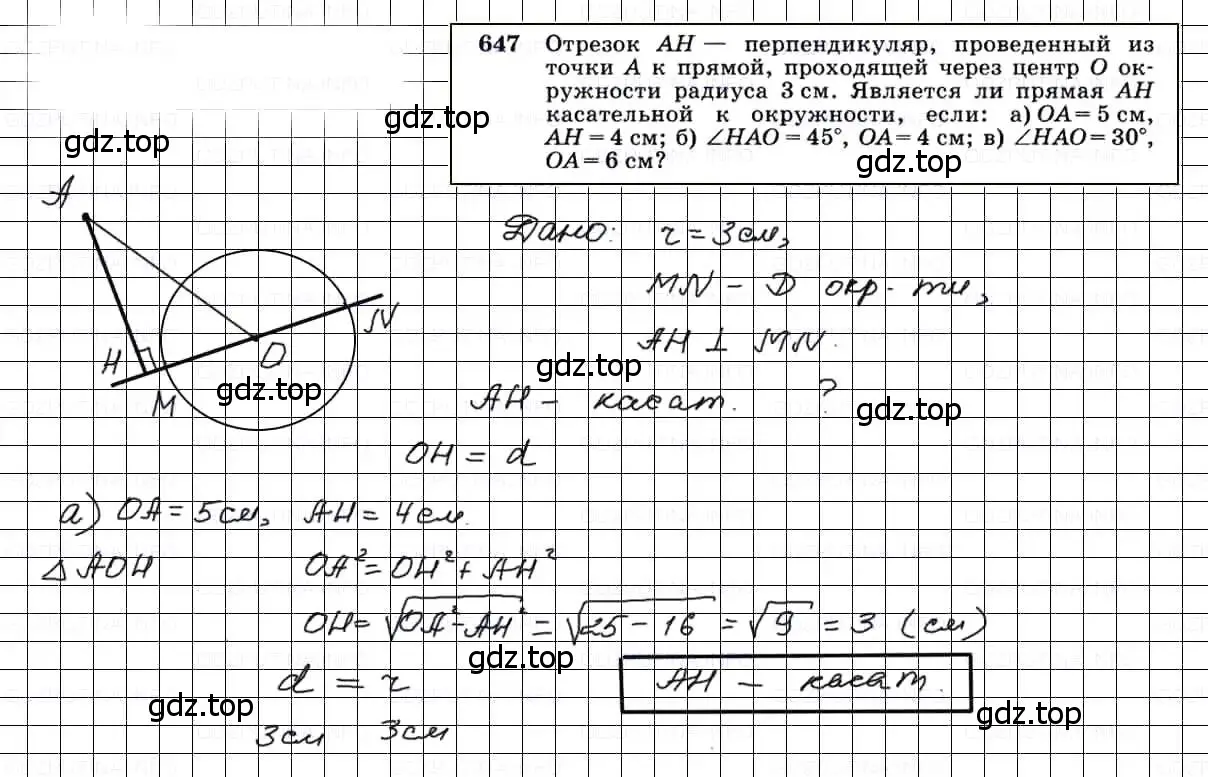 647 Отрезок AH — перпендикуляр, проведенный из
точки A к прямой, проходящей через центр O ок-
ружности радиуса 3 см. Является ли прямая AH
касательной к окружности, если: а) OA = 5 см,
AH = 4 см; б) ∠HAO = 45°, OA = 4 см; в) ∠HAO = 30°,
OA = 6 см?
gdz.top
gdz.top
A
H
M
O
N
gdz.top
Дано: r = 3 см,
MN - D окр-ти,
AH ⊥ MN.
gdz.top
AH - касат. ?
gdz.top
OH = d
а) OA = 5 см, AH = 4 см.
△ AOH OA² = OH² + AH²
OH = √OA² - AH² = √25 - 16 = √9 = 3 (см)
gdz.top
d = r
AH - касат.
gdz.top
gdz.top
3 см 3 см